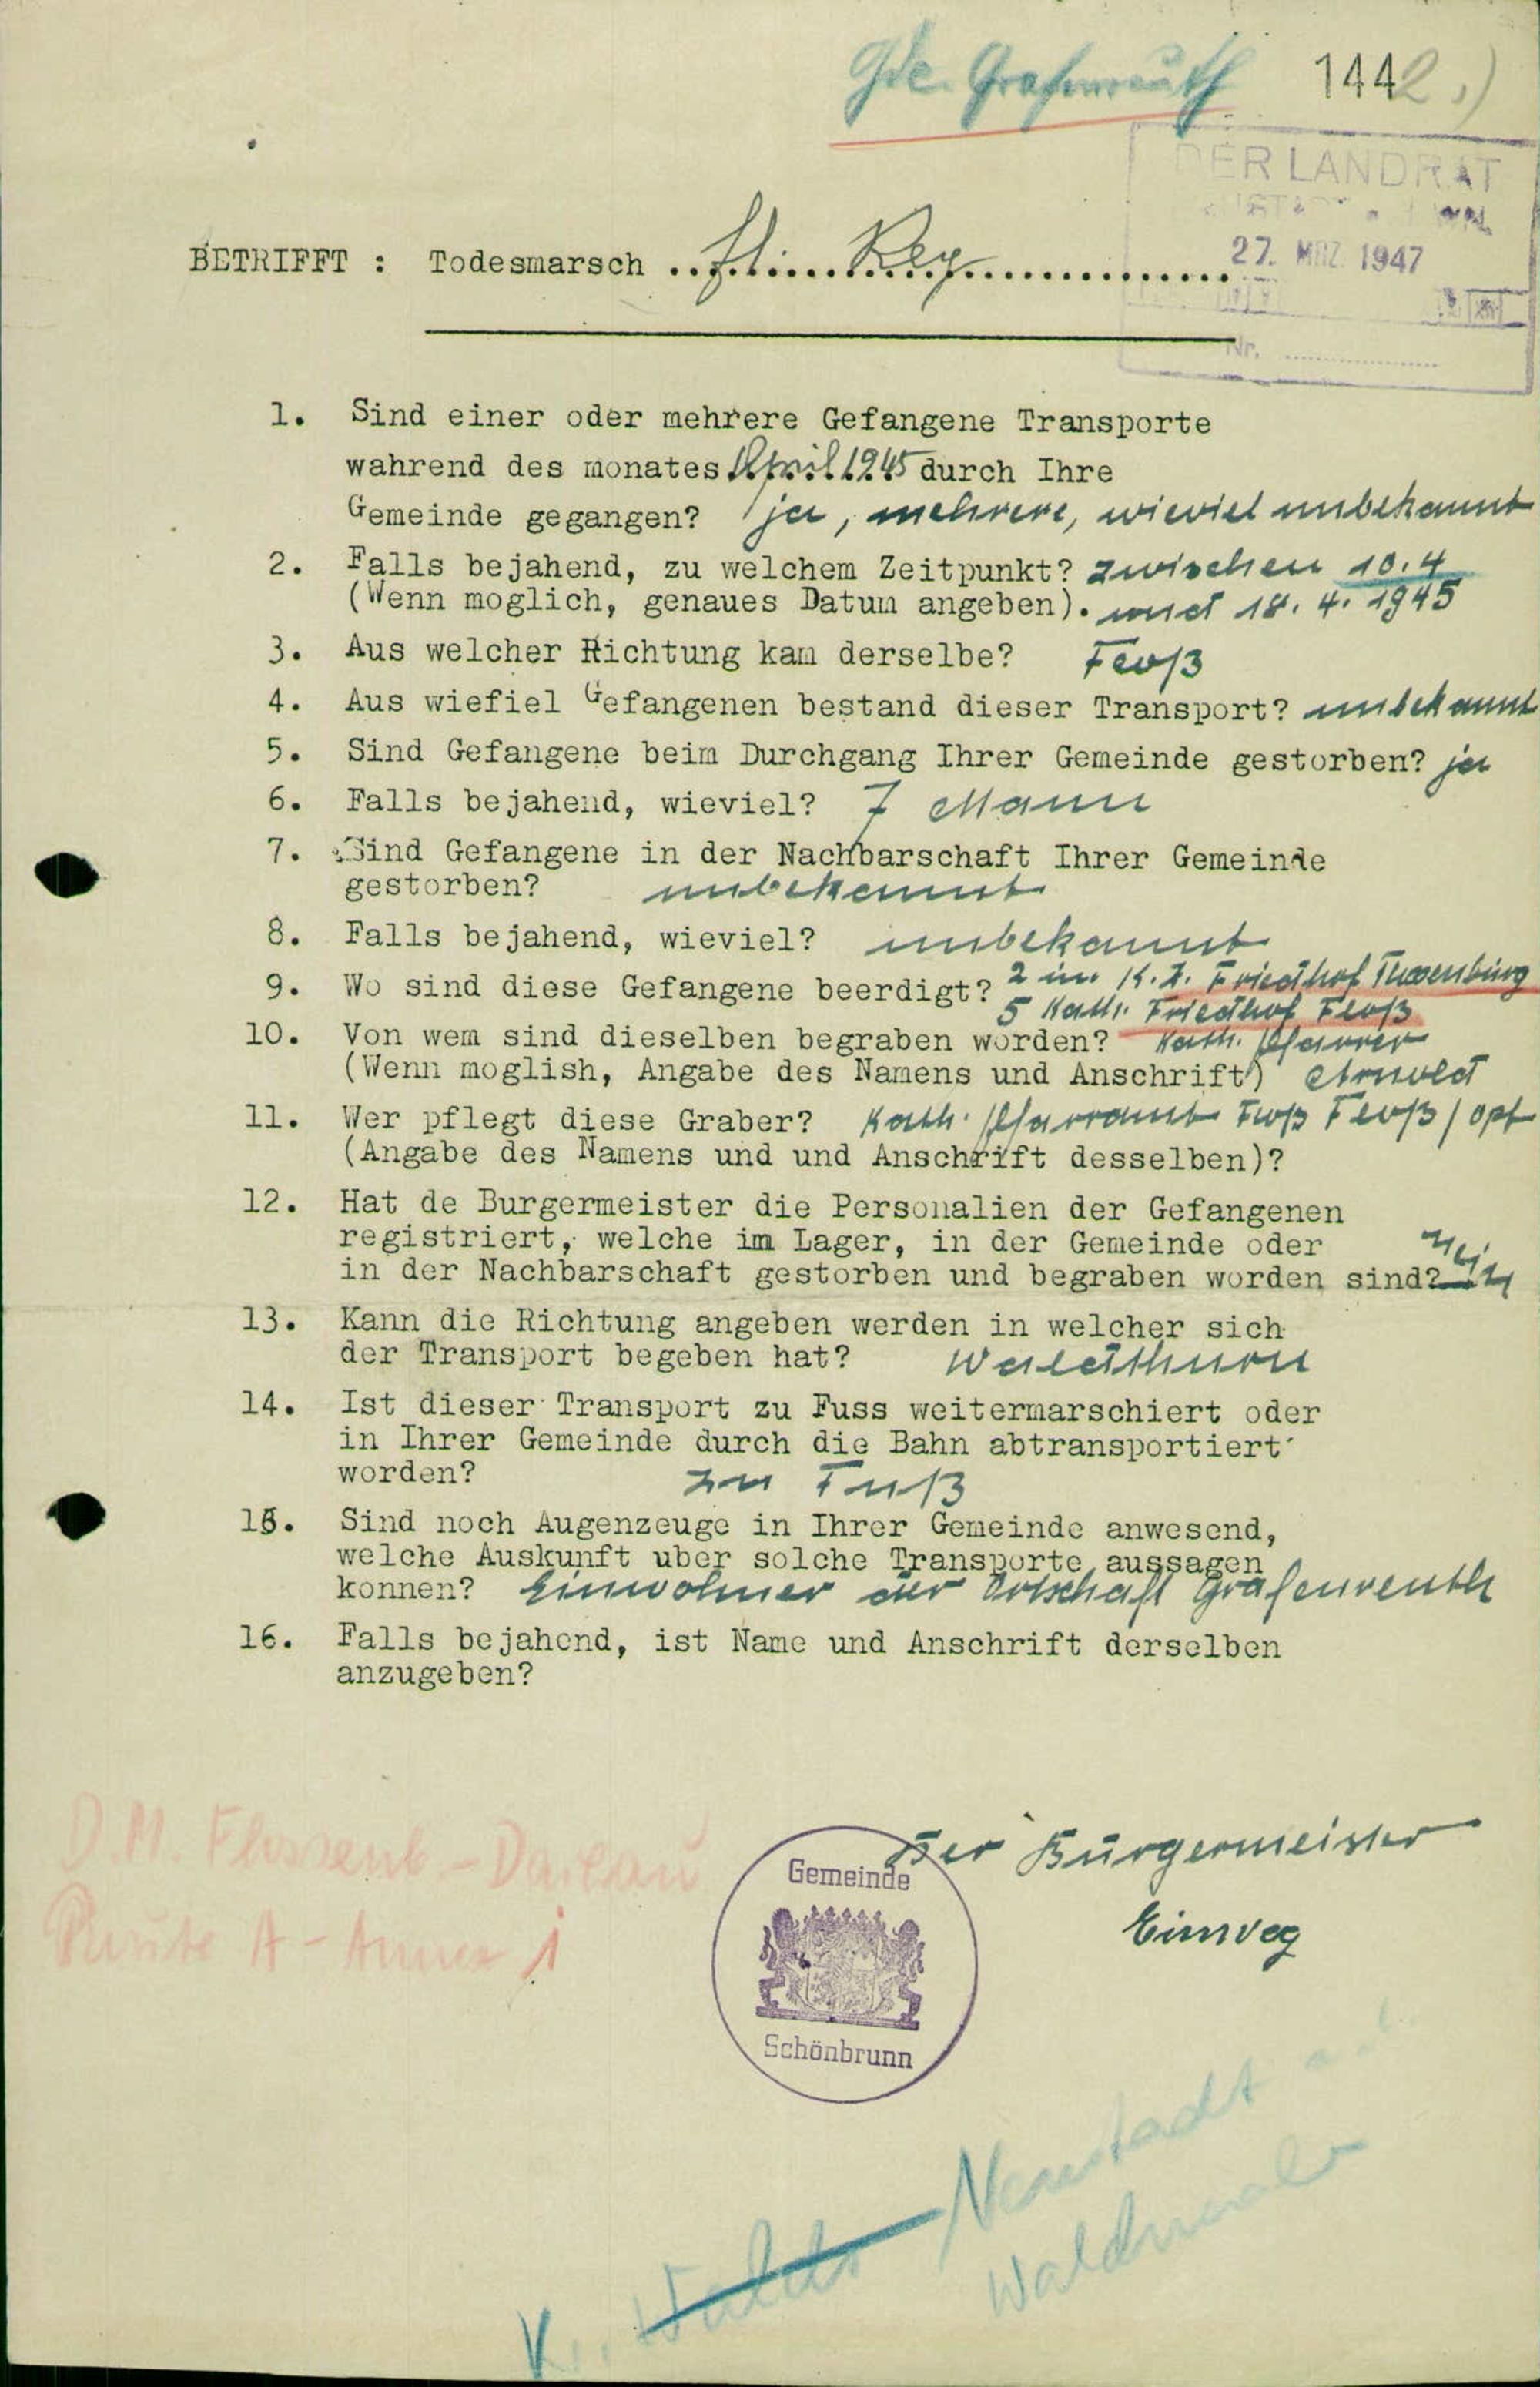 Gde. Grafenreuth 1442.)
DER LANDRAT
27. MRZ. 1947
Nr.
BETRIFFT : Todesmarsch
1. Sind einer oder mehrere Gefangene Transporte
wahrend des monates April 1945 durch Ihre
Gemeinde gegangen? ja, mehrere, wieviel unbekannt
2. Falls bejahend, zu welchem Zeitpunkt? zwischen 10.4
(Wenn moglich, genaues Datum angeben). und 18. 4. 1945
3. Aus welcher Richtung kam derselbe? Floß
4. Aus wiefiel Gefangenen bestand dieser Transport? unbekannt
5. Sind Gefangene beim Durchgang Ihrer Gemeinde gestorben? ja
6. Falls bejahend, wieviel? 7 Mann
7. Sind Gefangene in der Nachbarschaft Ihrer Gemeinde
gestorben? unbekannt
8. Falls bejahend, wieviel? unbekannt
9. Wo sind diese Gefangene beerdigt? 2 im K.Z. Friedhof
5 Kath. Friedhof Floß
10. Von wem sind dieselben begraben worden? Kath. Pfarrer
(Wenn moglish, Angabe des Namens und Anschrift) Arnold
11. Wer pflegt diese Graber? Kath. Pfarramt Floß Floß / Opf
(Angabe des Namens und und Anschrift desselben)?
12. Hat de Burgermeister die Personalien der Gefangenen
registriert, welche im Lager, in der Gemeinde oder
in der Nachbarschaft gestorben und begraben worden sind? Nein
13. Kann die Richtung angeben werden in welcher sich
der Transport begeben hat? Waldthurn
14. Ist dieser Transport zu Fuss weitermarschiert oder
in Ihrer Gemeinde durch die Bahn abtransportiert
worden? zu Fuß
15. Sind noch Augenzeuge in Ihrer Gemeinde anwesend,
welche Auskunft uber solche Transporte aussagen
konnen? Einwohner der Ortschaft Grafenreuth
16. Falls bejahend, ist Name und Anschrift derselben
anzugeben?
D.M. Flossenb - Dachau
Route A - Annex 1
Der Bürgermeister
Gemeinde
Schönbrunn
Neustadt